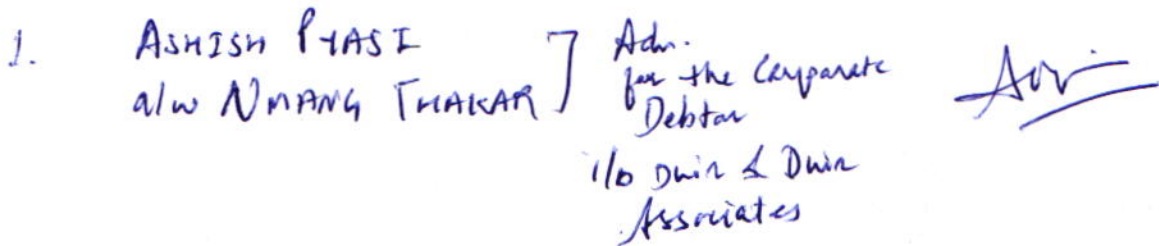 1. ASHISH PYASI ] Adv.
a/w NMANG THAKAR for the Corporate
Debtor
i/b Dhir & Dhir
Associates